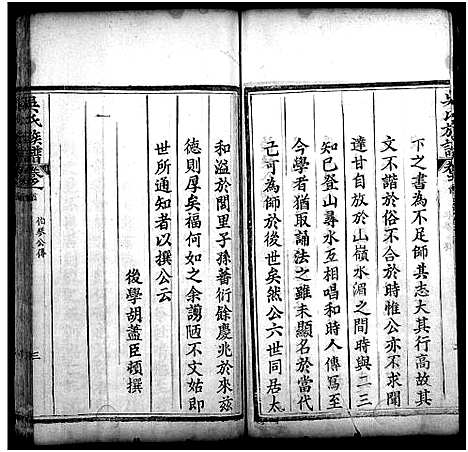 吳氏族譜
下之書為不足師其志大其行高故其
文不諧於俗不合於時惟公亦不求聞
達甘自放於山嶺水湄之間時與二三
知己登山尋水互相唱和時人傳寫至
今學者猶取誦法之雖未顯名於當代
己可為師於後世矣然公六世同居太
和溢於閭里子孫蕃衍餘慶兆於來茲
德則厚矣福何如之余謭陋不文姑即
世所通知者以撰公云
後學胡蓋臣頓撰
伯琴公傳
三
吳氏族譜